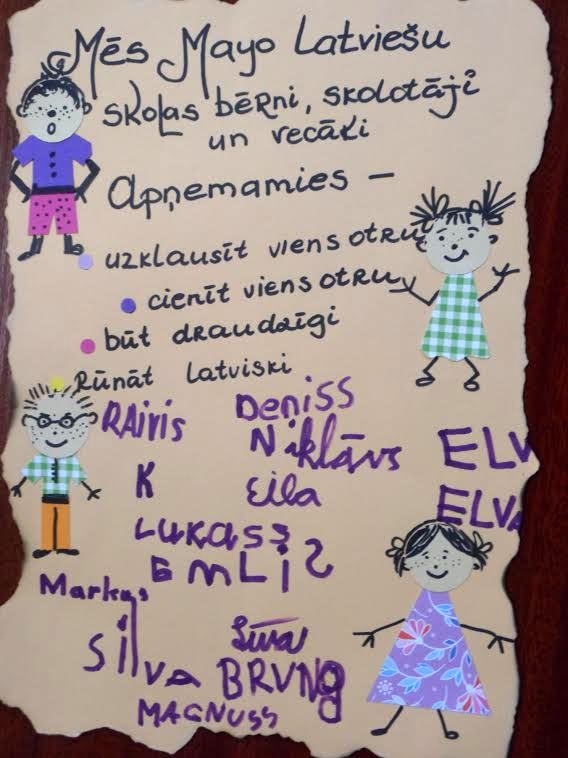 Mēs Mayo Latviešu
skolas bērni, skolotāji
un vecāki
Apņemamies –
uzklausīt viens otru
cienīt viens otru
būt draudzīgi
Rūnāt Latviski
RAiVis Deniss
Niklāvs ELV
K Eila ELVA
LUKASS
EMLiS
Markuss
Silva Līva
BRUNO
MAGNUSS